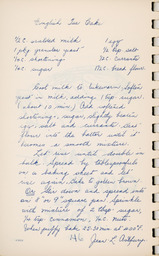 English Tea Cake
½ C. scalded milk 1 egg
1 pkg granular yeast ½ tsp salt
¼ C. shortening ½ C. currants
¼ C. sugar 1½ C. bread flour
Cool milk to lukewarm, soften
yeast in milk, adding 1 tsp sugar
(about 10 min.) Add softened
shortening, sugar, slightly beaten
egg, salt and currants. Add
flour and beat batter until it
becomes a smooth mixture.
Let rise until double in
bulk. Spread by tablespoonfuls
on a baking sheet and let
rise again. Bake to golden brown
Or Stir down and spread into
an 8" or 9" square pan. Sprinkle
with mixture of 2 tbsp. sugar,
½ tsp Cinnamon, ¼ C. nuts
When puffy bake 25-30 min at 400°F.
Jean L.